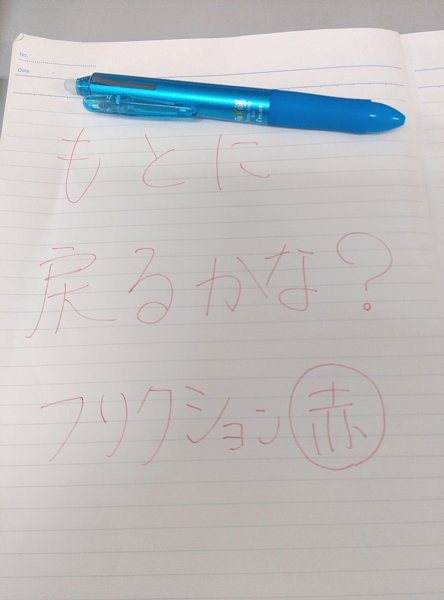 No.
Date
もとに
戻るかな?
フリクション赤